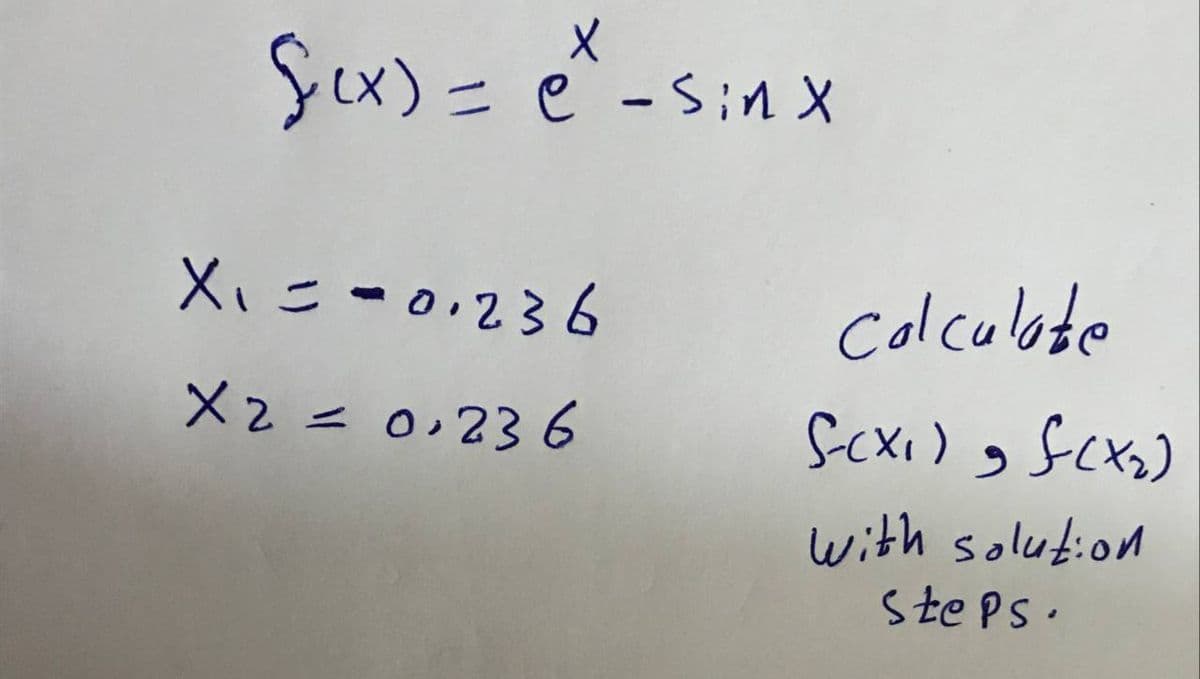 f(x) = e^x - sin x
x₁ = -0.236
x₂ = 0.236
Calculate
f(x₁) و f(x₂)
with solution
steps.